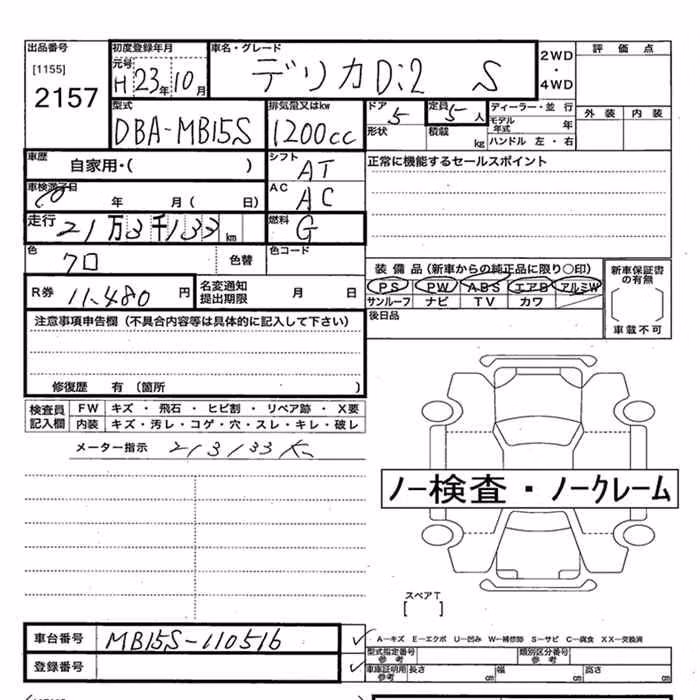 出品番号
[1155]
2157
初度登録年月
元号
H 23年 10月
車名・グレード
デリカD:2 S
2WD
・
4WD
評価点
外装 内装
型式
DBA-MB15S
排気量又はkw
1200cc
ドア
5
形状
定員
5人
積載
kg
ディーラー・並行
モデル年式 年
ハンドル 左・右
車歴
自家用・( )
シフト
AT
正常に機能するセールスポイント
車検満了日
年 月( 日)
AC
AC
走行
21万3千133km
燃料
G
色
クロ
色替
色コード
R券 11,480 円
名変通知
提出期限
月 日
装備品(新車からの純正品に限り○印)
PS PW ABS エアB アルミW
サンルーフ ナビ TV カワ
新車保証書
の有無
車載不可
後日品
注意事項申告欄(不具合内容等は具体的に記入して下さい)
修復歴 有(箇所 )
検査員
記入欄
FW キズ・飛石・ヒビ割・リペア跡・X要
内装 キズ・汚レ・コゲ・穴・スレ・キレ・破レ
メーター指示 213133K
ノー検査・ノークレーム
スペアT
[ ]
車台番号 MB15S-110516
登録番号
A-キズ E-エクボ U-凹み W-補修跡 S-サビ C-腐食 XX-交換済
型式指定番号
参考
類別区分番号
参考
車庫証明用
参考
長さ cm 幅 cm 高さ cm